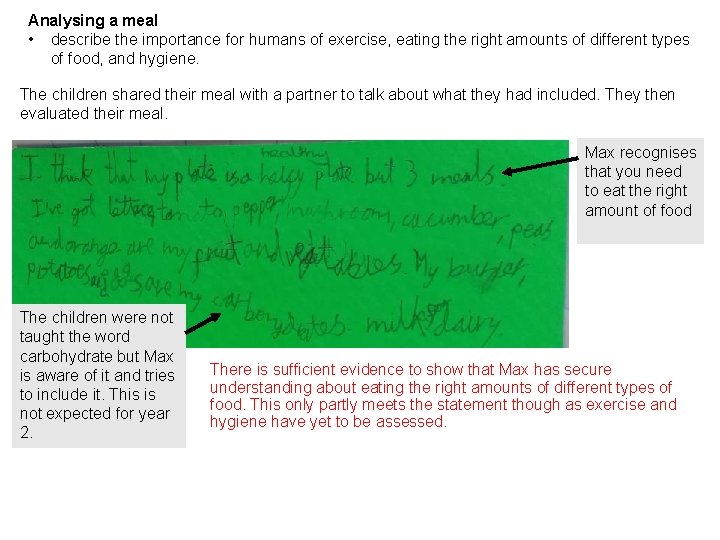 Analysing a meal
• describe the importance for humans of exercise, eating the right amounts of different types
of food, and hygiene.
The children shared their meal with a partner to talk about what they had included. They then
evaluated their meal.
healthy
I think that my plate is a helcy plate but 3 meals.
I've got lettuce tomato, pepper, mushroom, cucumber, peas
and orange are my fruit and vegetables. My burger,
potatoes, are my carbohydrates. milk dairy.
Max recognises
that you need
to eat the right
amount of food
The children were not
taught the word
carbohydrate but Max
is aware of it and tries
to include it. This is
not expected for year
2.
There is sufficient evidence to show that Max has secure
understanding about eating the right amounts of different types of
food. This only partly meets the statement though as exercise and
hygiene have yet to be assessed.